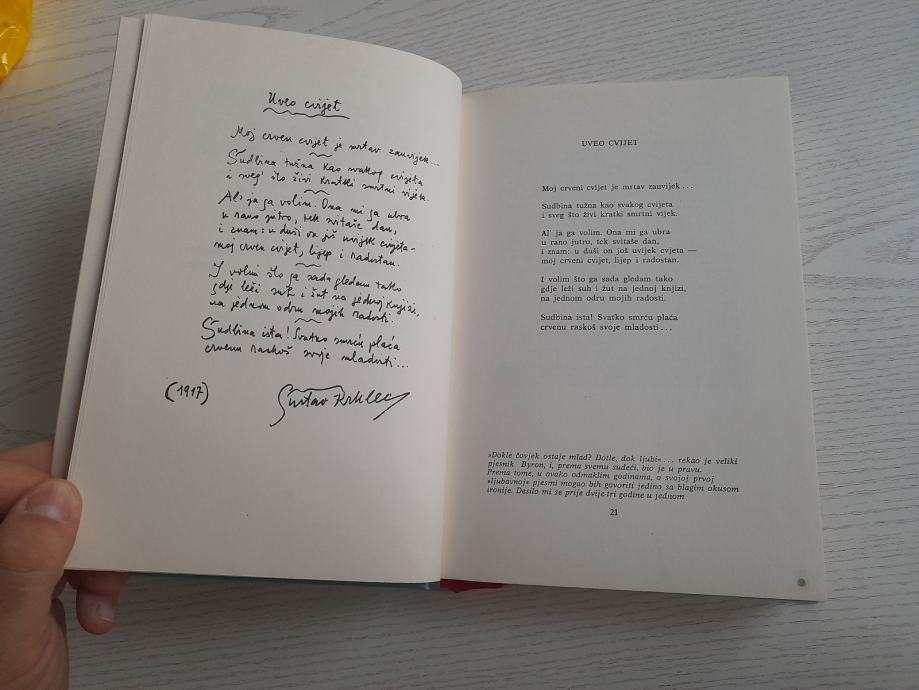 Uveo cvijet
Moj crven cvijet je mrtav zauvijek...
Sudbina tužna kao svakog cvijeta
i sveg' što živi kratki smrtni vijek.
Al' ja ga volim. Ona mi ga ubra
u rano jutro, tek svitaše dan,
i znam: u duši on još uvijek cvjeta –
moj crven cvijet, lijep i radostan.
I volim što ga sada gledam tako
gdje leži suh i žut na jednoj knjizi,
na jednom odru mojih radosti.
Sudbina ista! Svatko smrću plaća
crvenu raskoš svoje mladosti...
(1917)
Gustav Krklec
UVEO CVIJET
Moj crveni cvijet je mrtav zauvijek...
Sudbina tužna kao svakog cvjeta
i sveg što živi kratki smrtni vijek.
Al' ja ga volim. Ona mi ga ubra
u rano jutro, tek svitaše dan,
i znam: u duši on još uvijek cvjeta —
moj crveni cvijet, lijep i radostan.
I volim što ga sada gledam tako
gdje leži suh i žut na jednoj knjizi,
na jednom odru mojih radosti.
Sudbina ista! Svatko smrću plaća
crvenu raskoš svoje mladosti...
»Dokle čovjek ostaje mlad? Dotle, dok ljubi«... rekao je veliki
pjesnik Byron, i, prema svemu sudeći, bio je u pravu.
Prema tome, u ovako odmaklim godinama, o svojoj prvoj
»ljubavnoj« pjesmi mogao bih govoriti jedino sa blagim okusom
ironije. Desilo mi se prije dvije-tri godine u jednom
21